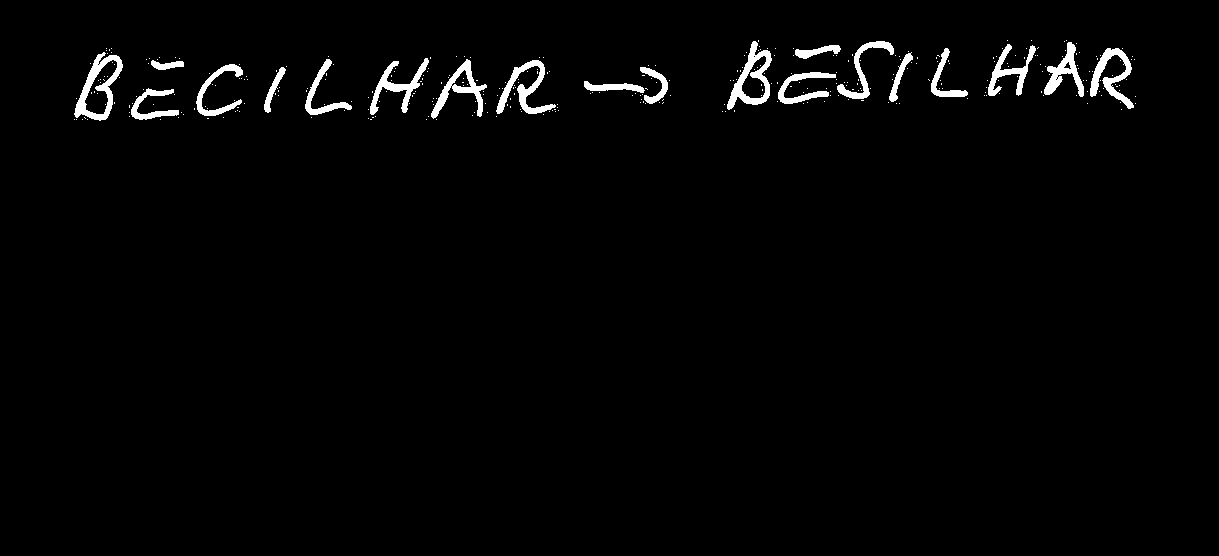 BECILHAR → BESILHAR